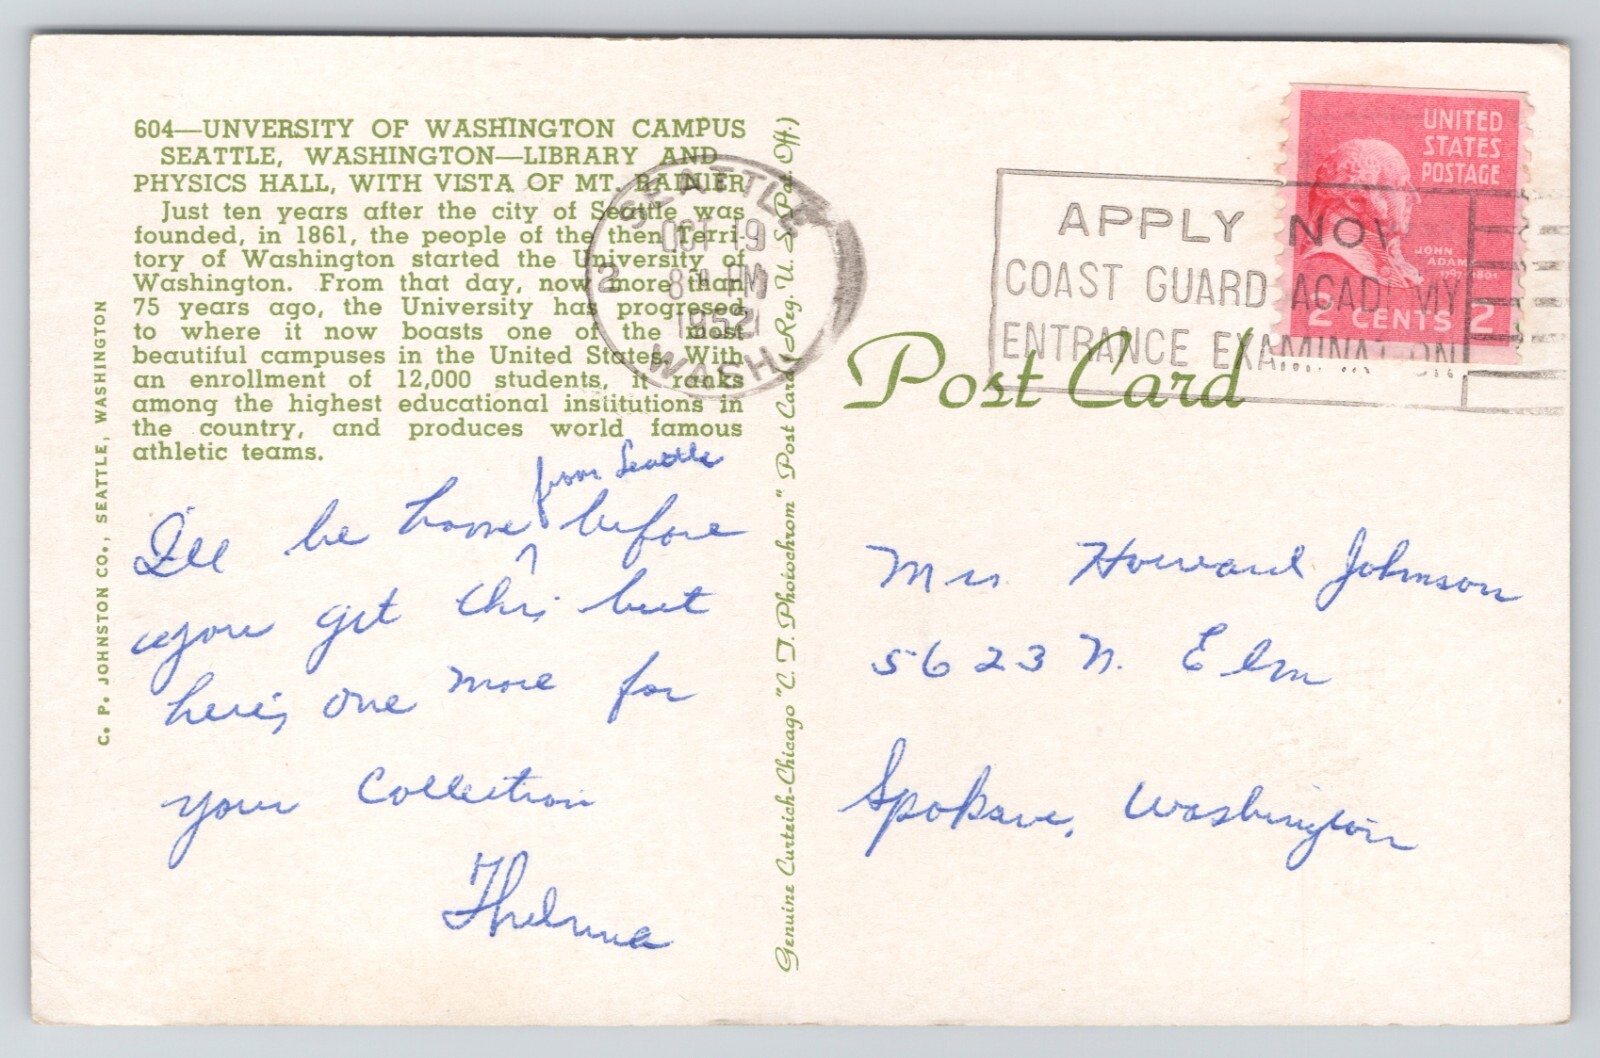 604—UNVERSITY OF WASHINGTON CAMPUS
SEATTLE, WASHINGTON—LIBRARY AND
PHYSICS HALL, WITH VISTA OF MT. RAINIER
Just ten years after the city of Seattle was
founded, in 1861, the people of the then Terri-
tory of Washington started the University of
Washington. From that day, now more than
75 years ago, the University has progresed
to where it now boasts one of the most
beautiful campuses in the United States. With
an enrollment of 12,000 students, it ranks
among the highest educational institutions in
the country, and produces world famous
athletic teams.
C. P. JOHNSTON CO., SEATTLE, WASHINGTON
from Seattle
I'll be home ^ before
you get this but
here's one more for
your collection
Thelma
Genuine Curteich-Chicago "C. T. Photochrom" Post Card (Reg. U. S. Pat. Off.)
SEATTLE
OCT 19
2
PM
1952
WASH.
APPLY NOW
COAST GUARD ACADEMY
ENTRANCE EXAMINATION
UNITED
STATES
POSTAGE
JOHN
ADAMS
1797-1801
2 CENTS 2
Post Card
Mrs Howard Johnson
5623 N. Elm
Spokane, Washington